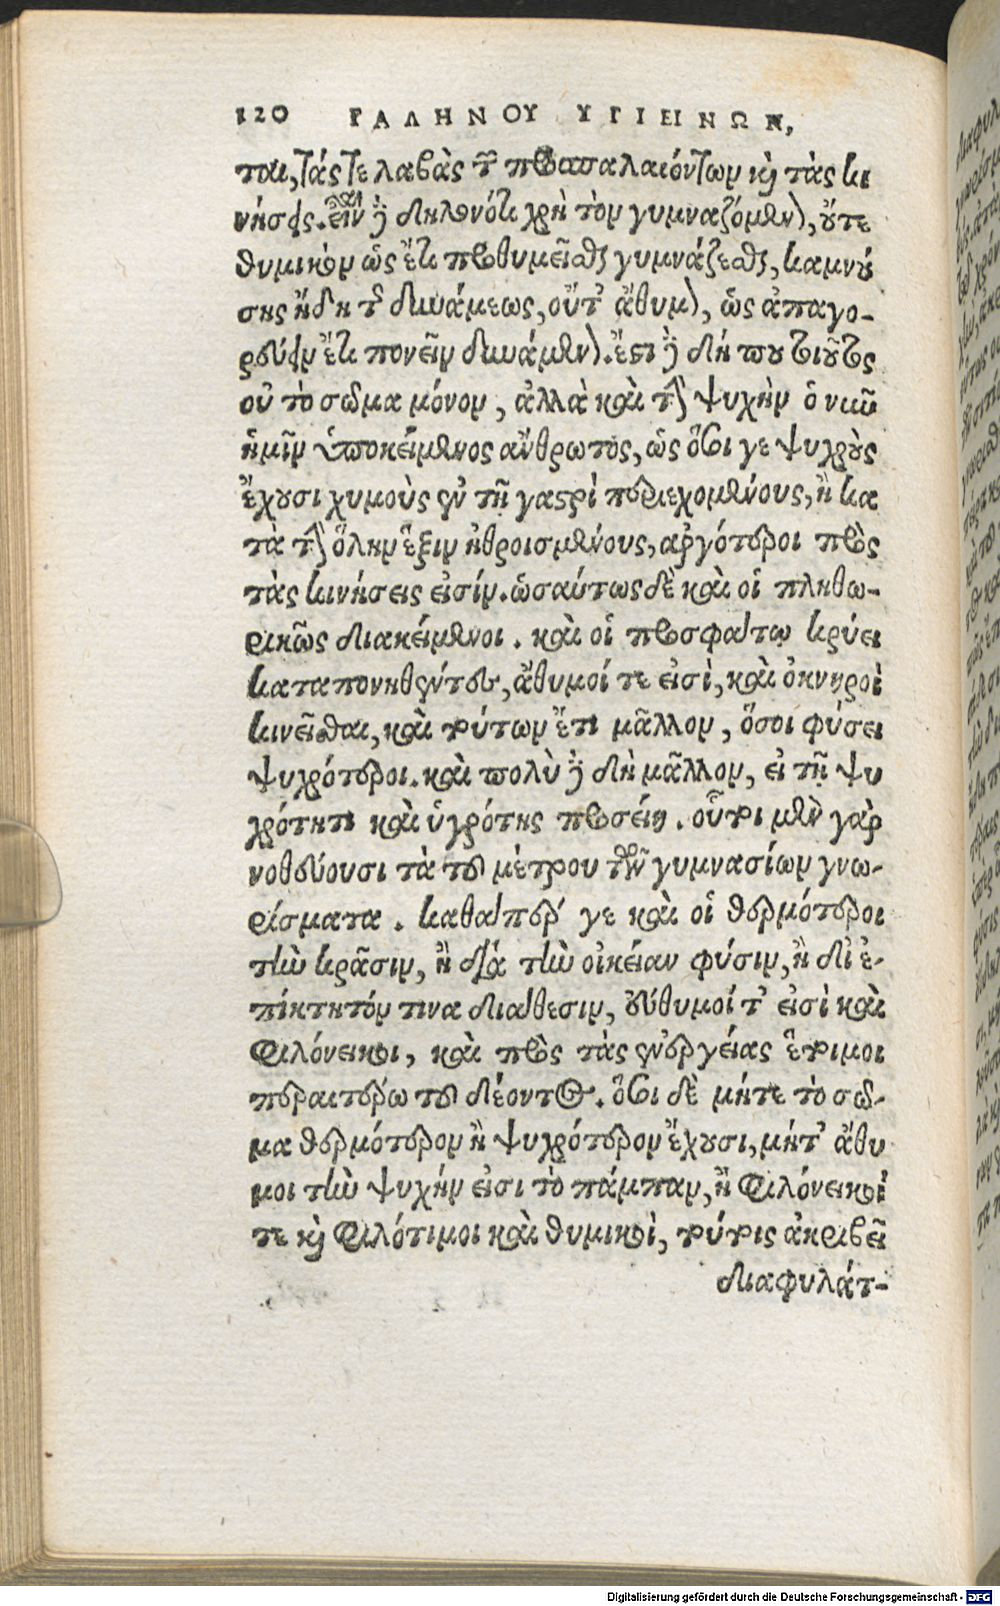 120 ΓΑΛΗΝΟΥ ΥΓΙΕΙΝΩΝ,
ται, τάς τε λαβὰς τῶν προσπαλαιόντων καὶ τὰς κι
νήσεις. εἶναι γὰρ δηλονότι χρὴ τὸν γυμναζόμενον, οὔτε
θυμικὸν ὡς ἔτι προθυμεῖσθαι γυμνάζεσθαι, καμνού
σης ἤδη τῆς δυνάμεως, οὔτ' ἄθυμον, ὡς ἀπαγο-
ρεύειν ἔτι πονεῖν δυνάμενον. ἔστι γὰρ δή που τοιοῦτος
οὐ τὸ σῶμα μόνον, ἀλλὰ καὶ τὴν ψυχὴν ὁ νῦν
ἡμῖν ὑποκείμενος ἄνθρωπος, ὡς ὅσοι γε ψυχροὺς
ἔχουσι χυμοὺς ἐν τῇ γαστρὶ περιεχομένους, ἢ κα
τὰ τὴν ὅλην ἕξιν ἠθροισμένους, ἀργότεροι πρὸς
τὰς κινήσεις εἰσίν. ὡσαύτως δὲ καὶ οἱ πληθω-
ρικῶς διακείμενοι. καὶ οἱ προσφάτῳ κρύει
καταπονηθέντες, ἄθυμοί τε εἰσὶ, καὶ ὀκνηροὶ
κινεῖσθαι, καὶ τούτων ἔτι μᾶλλον, ὅσοι φύσει
ψυχρότεροι. καὶ πολὺ γὰρ δὴ μᾶλλον, εἰ τῇ ψυ
χρότητι καὶ ὑγρότης προσείη. οὗτοι μὲν γὰρ
νοθεύουσι τὰ τοῦ μέτρου τῶν γυμνασίων γνω-
ρίσματα. καθάπερ γε καὶ οἱ θερμότεροι
τὴν κρᾶσιν, ἢ διὰ τὴν οἰκείαν φύσιν, ἢ δι' ἐ-
πίκτητόν τινα διάθεσιν, εὔθυμοί τ' εἰσὶ καὶ
φιλόνεικοι, καὶ πρὸς τὰς ἐνεργείας ἕτοιμοι
περαιτέρω τοῦ δέοντος. ὅσοι δὲ μήτε τὸ σῶ-
μα θερμότερον ἢ ψυχρότερον ἔχουσι, μήτ' ἄθυ
μοι τὴν ψυχήν εἰσι τὸ πάμπαν, ἢ φιλόνεικοί
τε καὶ φιλότιμοι καὶ θυμικοὶ, τούτοις ἀκριβεῖ
διαφυλάτ-
Digitalisierung gefördert durch die Deutsche Forschungsgemeinschaft - DFG